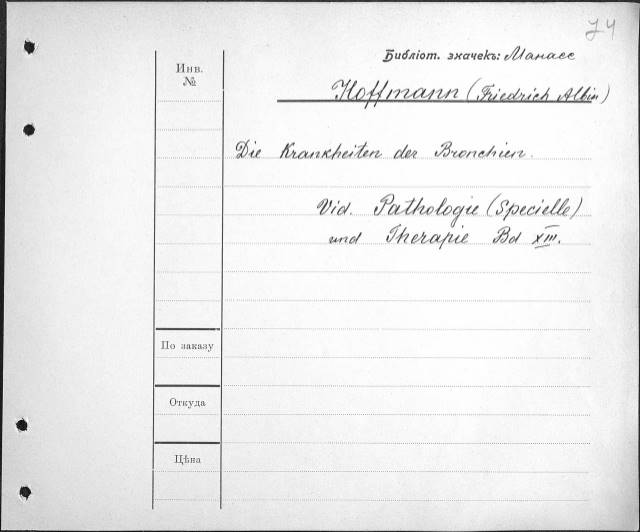 74
Библіот. значекъ: Манасс
Инв.
№
Hoffmann (Friedrich Albin)
Die Krankheiten der Bronchien.
Vid. Pathologie (Specielle)
und Therapie Bd XIII.
По заказу
Откуда
Цѣна